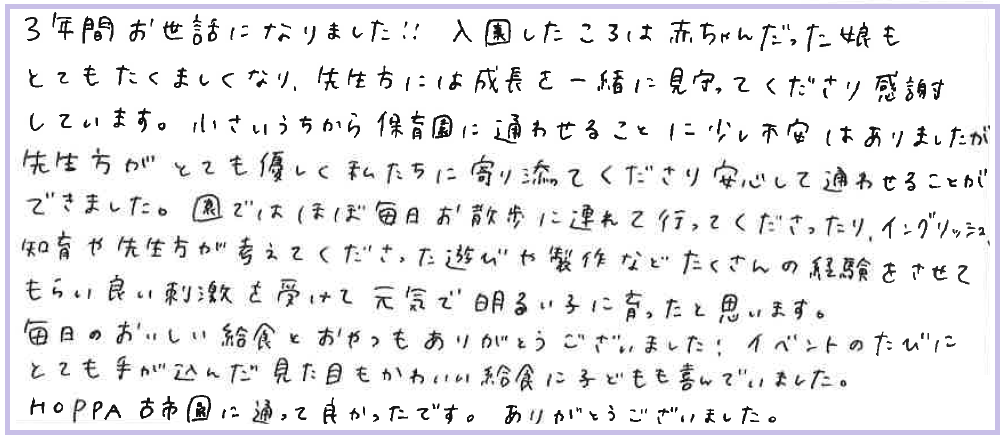 3年間お世話になりました!! 入園したころは赤ちゃんだった娘も
とてもたくましくなり、先生方には成長を一緒に見守ってくださり感謝
しています。小さいうちから保育園に通わせることに少し不安はありましたが
先生方がとても優しく私たちに寄り添ってくださり安心して通わせることが
できました。園ではほぼ毎日お散歩に連れて行ってくださったり、イングリッシュ、
知育や先生方が考えてくださった遊びや製作などたくさんの経験をさせて
もらい良い刺激を受けて元気で明るい子に育ったと思います。
毎日のおいしい給食とおやつもありがとうございました! イベントのたびに
とても手が込んだ見た目もかわいい給食に子どもも喜んでいました。
HOPPA古市園に通って良かったです。ありがとうございました。